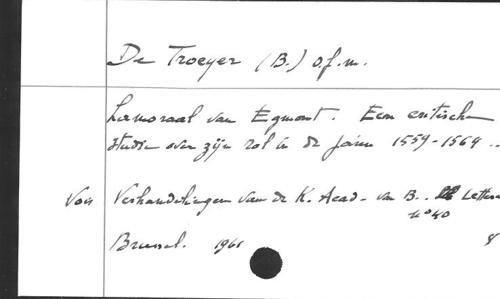 De Troeyer (B.) o.f.m.
Lamoraal van Egmont. Een critische
studie over zijn rol in de jaren 1559-1564
Voir Verhandelingen van de K. Acad. van B. Letteren
n° 40
Brussel. 1961
8